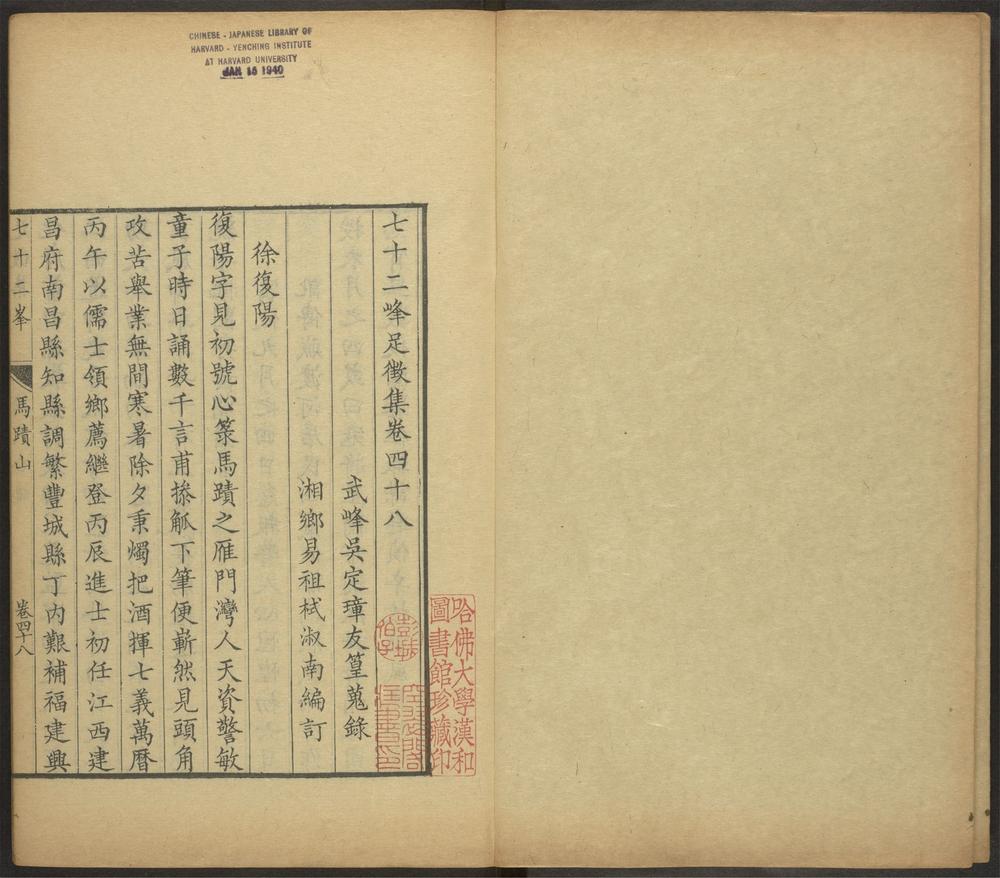 CHINESE - JAPANESE LIBRARY OF
HARVARD - YENCHING INSTITUTE
AT HARVARD UNIVERSITY
JAN 15 1940
七十二峰足徵集卷四十八
武峰吳定璋友篁蒐錄
湘鄉易祖栻淑南編訂
徐復陽
復陽字見初號心䇿馬蹟之雁門灣人天資警敏
童子時日誦數千言甫掭觚下筆便嶄然見頭角
攻苦舉業無間寒暑除夕秉燭把酒揮七義萬曆
丙午以儒士領鄉薦繼登丙辰進士初任江西建
昌府南昌縣知縣調繁豐城縣丁內艱補福建興
七十二峯
馬蹟山
卷四十八
哈佛大學漢和
圖書館珍藏印